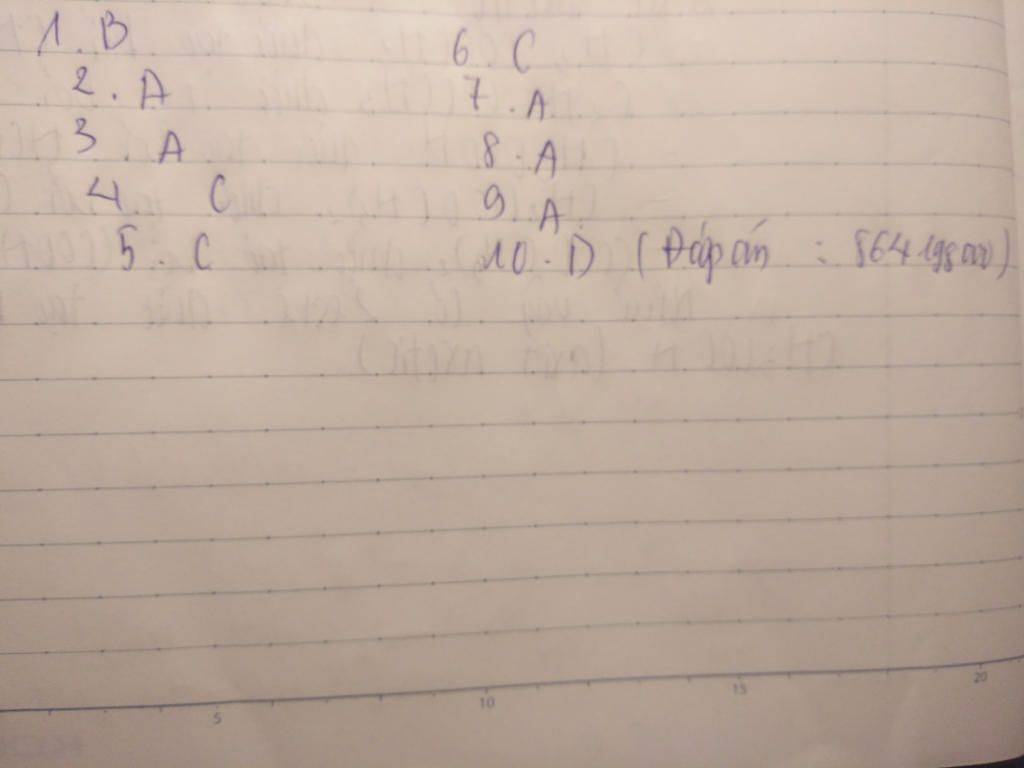 1. B
2. A
3. A
4. C
5. C
6. C
7. A
8. A
9. A
10. D (Đáp án : 864198000)
5 10 15 20